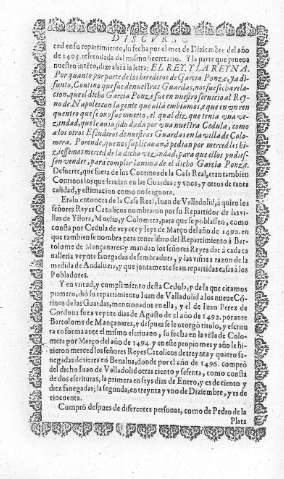 DISCURSO
cení en su repartimiento, su fecha por el mes de Diziembre del año
de 1495. refrendada del mismo Secretario. Y la parte que prueua
nuestro intéto, dize así a la letra: EL REY, Y LA REYNA.
Por quanto por parte de los herederos de Garcia Ponze, ya di-
funto, Contino que fue de nuestras Guardas, nos fue fecha rela-
cion, que el dicho Garcia Ponze fue en nuestro seruicio al Rey-
no de Napoles con la gente que allá embiamos, è que en vn en
cuentro que con sus muerto, el qual diz, que tenia vna ve-
zindad, que le auia sido dada por vna nuestra Cedula, como
a los otros Escuderos de nuestras Guardas en la villa de Colo-
mera. Porende, que nos suplicauan è pedian por merced les hi-
ziessemos merced de la dicha vezindad, para que ellos pudies-
sen vender, para complir la anima de el dicho Garcia Ponze.
Desuerte, que fuera de los Continos de la Casa Real, eran tambien
Continos los que seruian en las Guardas; y vnos, y otros de tanta
calidad, y estimacion como se requiere.
Era lo contino en la Casa Real, Iuan de Valladolid, à quien los
señores Reyes Catolicos nombraron por su Repartidor de las vi-
llas de Yllora, Moclin, y Colomera, para que se poblassen, como
consta por Cedula de veynte y seys de Março del año de 1492. en
que tambien se nombra para tener libro del Repartimiento à Bar-
tolome de Mançanares; y mandan los señores Reyes dar à cada ca
ualleria veynte fanegadas de sembradura, y las viñas à razon de la
medida de Andaluzia, y que juntamente sean repartidas, e así a los
Pobladores.
Y en virtud, y cumplimiento desta Cedula, y de la que citamos
primero, dió su repartimiento Iuan de Valladolid a los nueue Có-
tinos de las Guardas, mencionados en ella, y el de Iuan Perez de
Cordoua fue a veynte dias de Agosto de el año de 1492. por ante
Bartolome de Mançanares, y despues se le otorgó titulo, y escritu
ra en forma ante el mismo escriuano, su fecha en la villa de Colo-
mera por Março del año de 1494. y en este proprio mes y año le hi-
zieron merced los señores Reyes Catolicos de treynta y quatro fa-
negadas de tierra en Benalua, donde por el año de 1496. compró
del dicho Iuan de Valladolid otras ciento y sesenta, como consta
de dos escrituras, la primera en seys dias de Enero, y es de ciento y
diez fanegadas; la segunda, en treynta y vno de Diziembre, y es de
cincuenta.
Compró despues de diferentes personas, como de Pedro de la
Plata